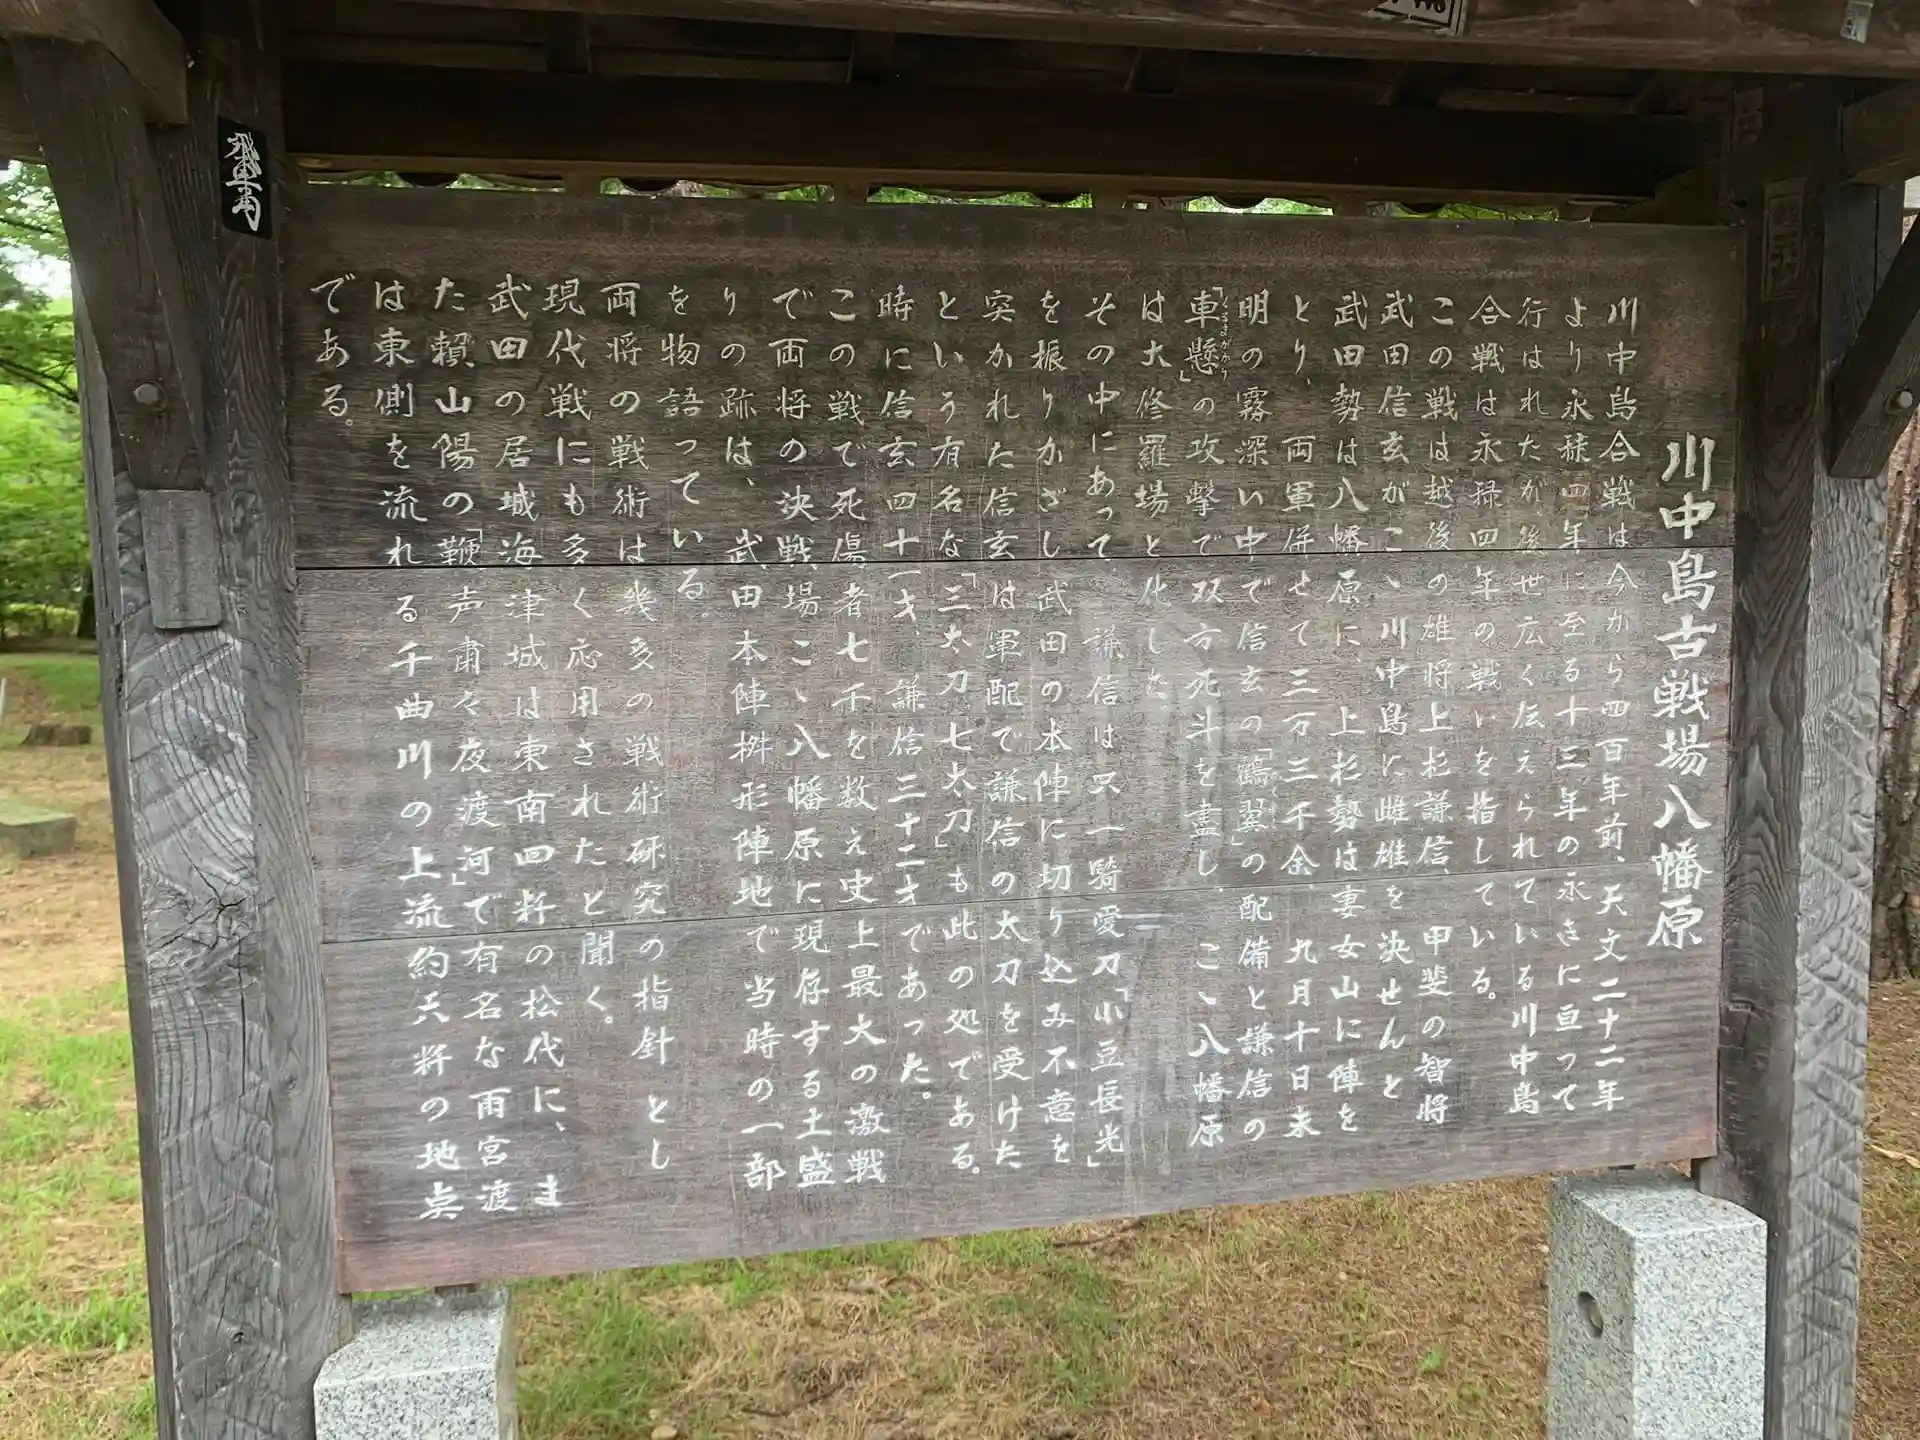 川中島古戦場八幡原
川中島合戦は今から四百年前、天文二十二年
より永禄四年に至る十三年の永きに亘って
行はれたが後世広く伝えられている川中島
合戦は永禄四年の戦いを指している。
この戦は越後の雄将上杉謙信、甲斐の智将
武田信玄がこゝ川中島に雌雄を決せんと
武田勢は八幡原に、上杉勢は妻女山に陣を
とり、両軍併せて三万三千余、九月十日未
明の霧深い中で信玄の「鶴翼」の配備と謙信の
「車懸」の攻撃で双方死斗を盡し、こゝ八幡原
くるまがかり
は大修羅場と化した。
その中にあって、謙信は只一騎愛刀「小豆長光」
を振りかざし武田の本陣に切り込み不意を
突かれた信玄は軍配で謙信の太刀を受けた
という有名な「三太刀七太刀」も此の処である。
時に信玄四十一才、謙信三十二才であった。
この戦で死傷者七千を数え史上最大の激戦
で両将の決戦場こゝ八幡原に現存する土盛
りの跡は、武田本陣桝形陣地で当時の一部
を物語っている。
両将の戦術は幾多の戦術研究の指針とし
現代戦にも多く応用されたと聞く。
武田の居城海津城は東南四粁の松代に、ま
た頼山陽の「鞭声粛々夜渡河」で有名な雨宮渡
は東側を流れる千曲川の上流約六粁の地点
である。